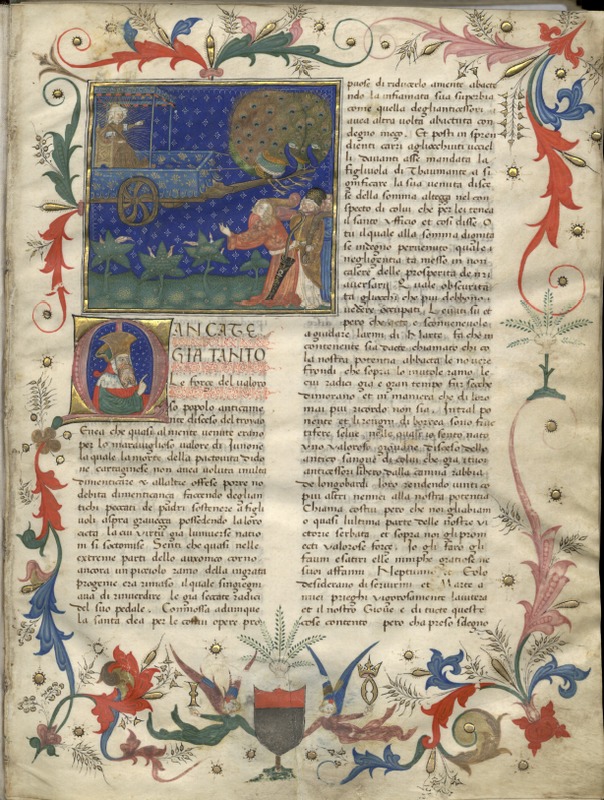 MANCATE
GIA TANTO
Le forze del valoro
so popolo anticame
nte disceso del troyano
Enea che quasi al niente venite erano
per lo maraviglioso valore di Junone
la quale la morte della pactovita Dido
ne cartaginese non avea voluta multa
dimenticare et all altre offese porre no
debita dimenticanza faccendo degli an
tichi peccati de padri sostenere a figli
uoli aspra gravezza possedendo la loro
cicta la cui virtu gia l universe natio
ni si soctomise Senti che quasi nelle
extreme parti dello auxoneo corno
ancora un picciolo ramo della ingrata
progenie era rimaso il quale s ingiegni
ava di rinverdire le gia seccate radici
del suo pedale. Commossa adumque
la santa dea per le costui opere pro
puose di riducerlo a niente abacte
ndo la infiamata sua superbia
come quella degli anticessori
avea altra volta abactuta con
degno mezo. Et posti in spren
dienti carri agl occhiuti uccel
li davanti a sse mandata la
figliuola di Thaumante a si
gnificare la sua venuta disce
se della somma altezza nel con
specto di colui che per lei tenea
il santo Officio et cosi disse O
tu il quale alla somma dignita
se indegno pervenuto quale
negligentia t a messo in non
calere delle prosperita de nri
aversarii E quale obscurita
t a gl occhi che piu debbono
vedere occupati. Levati su et
pero che arte e sconvenevole
a guidare l armi di Marte fa che in
contenente sia da ecte chiamato chi co
la nostra potentia abbacta le no vere
frondi che sopra lo inutole ramo le
cui radici gia e gran tempo fur secche
dimorano et in maniera che di loro
mai piu ricordo non sia. Intra l po
nente et li regni di borrea sono fruc
tifere selve nelle quali io sento nato
uno valoroso giovane disceso dello
antico sangue di colui che gia i tuoi
anticessori libero dalla canina rabbia
de longobardi loro rendendo vinti co
piu altri nemici alla nostra potentia
Chiama costui pero che noi gli abiam
o quasi l ultima parte delle nostre vi
ctorie serbata et sopra noi gli prom
ecti valorose forze. Io gli faro gli
fauni e satiri et le nimphe gratiose ne
suoi affanni. Neptunno et Eolo
desiderano di servirmi et Marte a
miei prieghi vigorosamente l aiutera
et il nostro Giove e di tucte queste
cose contento pero che preso sdegno
I O